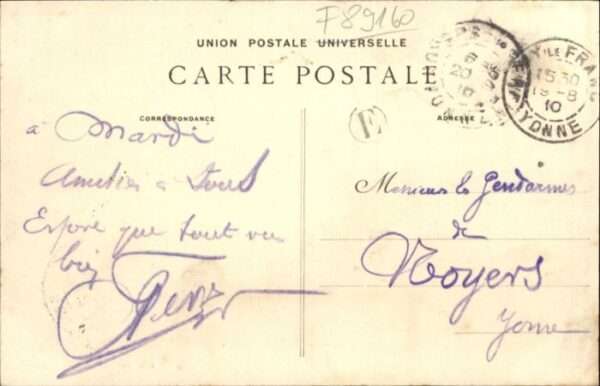 F89160
UNION POSTALE UNIVERSELLE
CARTE POSTALE
CORRESPONDANCE
ADRESSE
E
FRANC
15 30
19-8
10
YONNE
20
10
à Mardi
Amitiés a tous
Espère que tout va
bien
Messieurs les Gendarmes
de
Noyers
Yonne